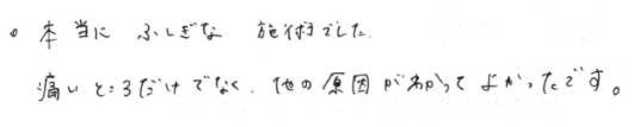 。本当に ふしぎな 施術でした.
痛いところだけでなく、他の原因がわかってよかったです。